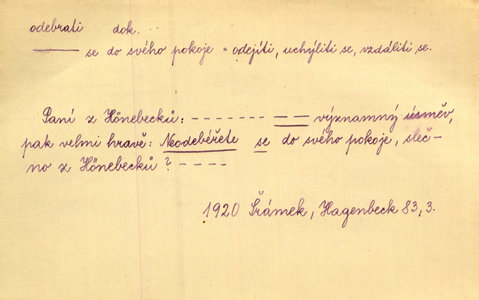 odebrati dok. . .
——— se do svého pokoje = odejíti, uchýliti se, vzdáliti se.
Paní z Hönebecků: - - - - - - - — — významný úsměv,
pak velmi hravě: Neodebéřete se do svého pokoje, sleč-
no z Hönebecků? - - - -
1920 Šrámek, Hagenbeck 83, 3.